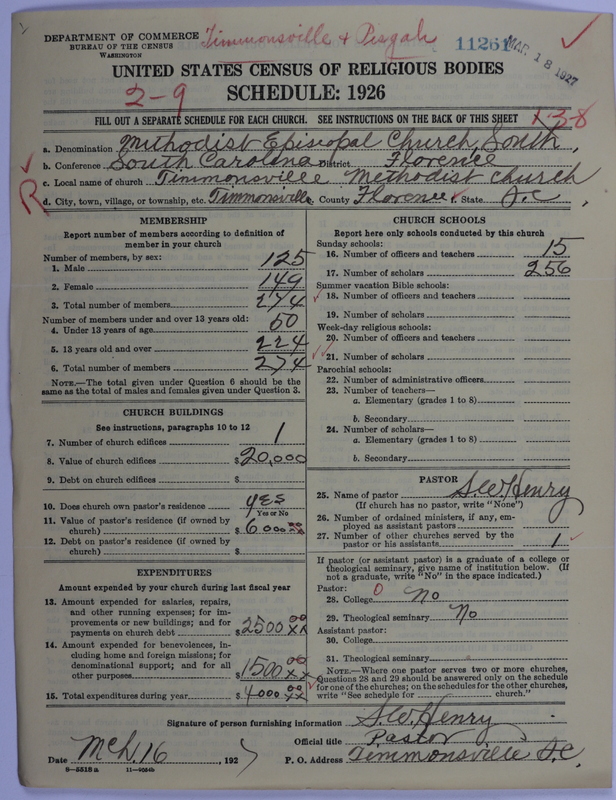 DEPARTMENT OF COMMERCE
BUREAU OF THE CENSUS
WASHINGTON
Timmonsville & Pisgah
11261
MAR 18 1927
UNITED STATES CENSUS OF RELIGIOUS BODIES
SCHEDULE: 1926
2-9
FILL OUT A SEPARATE SCHEDULE FOR EACH CHURCH. SEE INSTRUCTIONS ON THE BACK OF THIS SHEET
3-8
a. Denomination Methodist Episcopal Church, South,
b. Conference South Carolina District Florence
c. Local name of church Timmonsville Methodist church
R
d. City, town, village, or township, etc. Timmonsville County Florence State S.C.
MEMBERSHIP
Report number of members according to definition of
member in your church
Number of members, by sex:
1. Male 125
2. Female 149
3. Total number of members 274
Number of members under and over 13 years old:
4. Under 13 years of age 50
5. 13 years old and over 224
6. Total number of members 274
NOTE.—The total given under Question 6 should be the
same as the total of males and females given under Question 3.
CHURCH BUILDINGS
See instructions, paragraphs 10 to 12
7. Number of church edifices 1
8. Value of church edifices $20,000
9. Debt on church edifices $
10. Does church own pastor's residence yes
Yes or No
11. Value of pastor's residence (if owned by
church) $6000 xx
12. Debt on pastor's residence (if owned by
church) $
EXPENDITURES
Amount expended by your church during last fiscal year
13. Amount expended for salaries, repairs,
and other running expenses; for im-
provements or new buildings; and for
payments on church debt $2500 00 xx
14. Amount expended for benevolences, in-
cluding home and foreign missions; for
denominational support; and for all
other purposes $1500 00 xx
15. Total expenditures during year $4000 00 xx
CHURCH SCHOOLS
Report here only schools conducted by this church
Sunday schools:
16. Number of officers and teachers 15
17. Number of scholars 256
Summer vacation Bible schools:
18. Number of officers and teachers
19. Number of scholars
Week-day religious schools:
20. Number of officers and teachers
21. Number of scholars
Parochial schools:
22. Number of administrative officers
23. Number of teachers—
a. Elementary (grades 1 to 8)
b. Secondary
24. Number of scholars—
a. Elementary (grades 1 to 8)
b. Secondary
PASTOR
25. Name of pastor S.W. Henry
(If church has no pastor, write "None")
26. Number of ordained ministers, if any, em-
ployed as assistant pastors
27. Number of other churches served by the
pastor or his assistants 1
If pastor (or assistant pastor) is a graduate of a college or
theological seminary, give name of institution below. (If
not a graduate, write "No" in the space indicated.)
Pastor:
28. College 0 No
29. Theological seminary No
Assistant pastor:
30. College
31. Theological seminary
NOTE.—Where one pastor serves two or more churches,
Questions 28 and 29 should be answered only on the schedule
for one of the churches; on the schedules for the other churches,
write "See schedule for church."
Signature of person furnishing information S.W. Henry
Official title Pastor
Date Mch. 16 1927
P. O. Address Timmonsville S.C.
8—5518a 11—9024b